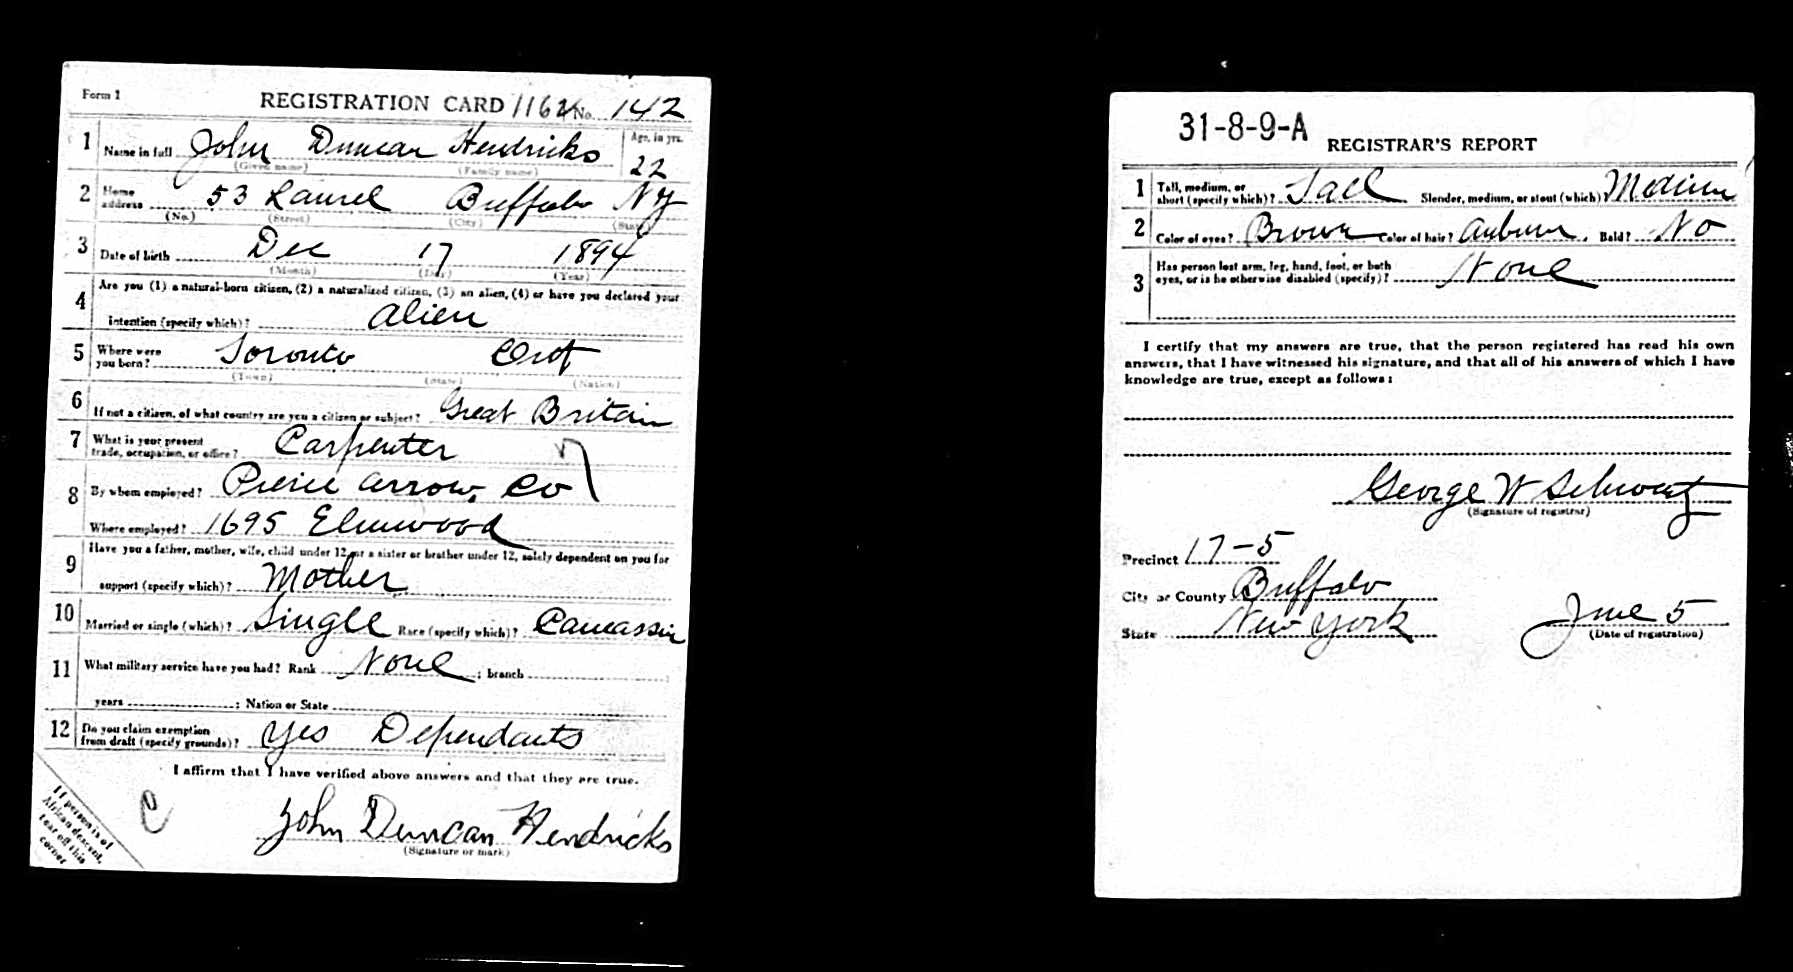 Form 1 REGISTRATION CARD 1162 No. 142
1 Name in full John Duncan Hendricks Age, in yrs. 22
(Given name) (Family name)
2 Home address 53 Laurel Buffalo NY
(No.) (Street) (City) (State)
3 Date of birth Dec 17 1894
(Month) (Day) (Year)
4 Are you (1) a natural-born citizen, (2) a naturalized citizen, (3) an alien, (4) or have you declared your
intention (specify which)? Alien
5 Where were you born? Toronto Ont
(Town) (State) (Nation)
6 If not a citizen, of what country are you a citizen or subject? Great Britain
7 What is your present trade, occupation, or office? Carpenter
8 By whom employed? Pierce Arrow Co
Where employed? 1695 Elmwood
9 Have you a father, mother, wife, child under 12, or a sister or brother under 12, solely dependent on you for
support (specify which)? Mother
10 Married or single (which)? Single Race (specify which)? Caucassin
11 What military service have you had? Rank None ; branch
years ; Nation or State
12 Do you claim exemption from draft (specify grounds)? Yes Dependants
I affirm that I have verified above answers and that they are true.
John Duncan Hendricks
(Signature or mark)
If person is of
African descent,
tear off this
corner
C
31-8-9-A
REGISTRAR'S REPORT
1 Tall, medium, or short (specify which)? Tall Slender, medium, or stout (which)? Medium
2 Color of eyes? Brown Color of hair? Auburn Bald? No
3 Has person lost arm, leg, hand, foot, or both
eyes, or is he otherwise disabled (specify)? None
I certify that my answers are true, that the person registered has read his own
answers, that I have witnessed his signature, and that all of his answers of which I have
knowledge are true, except as follows:
George W Schwartz
(Signature of registrar)
Precinct 17-5
City or County Buffalo
State New York June 5
(Date of registration)